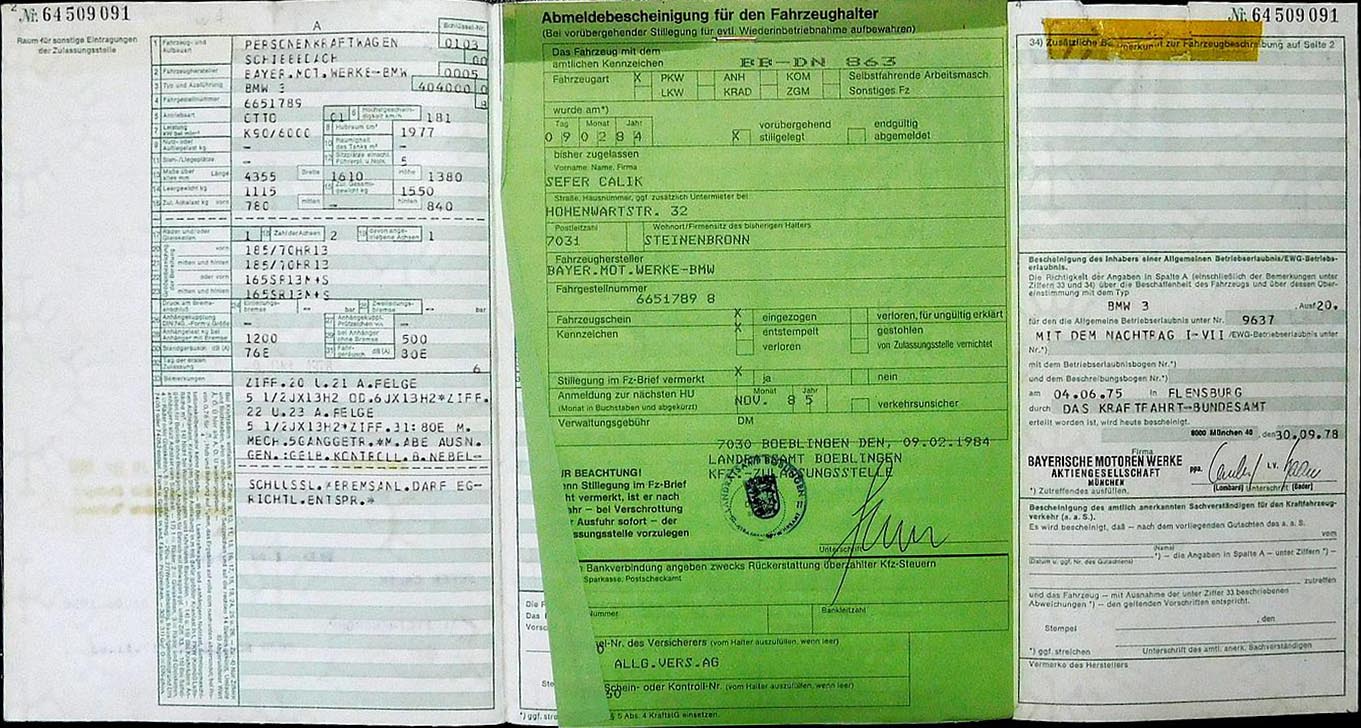 Nr. 64 509 091
Raum für sonstige Eintragungen
der Zulassungsstelle
A
Schlüssel-Nr.
1 Fahrzeug- und Aufbauart PERSONENKRAFTWAGEN 0103
SCHIEBEDACH 00
2 Fahrzeughersteller BAYER.MOT.WERKE-BMW 0005
3 Typ und Ausführung BMW 3 404000
4 Fahrgestellnummer 6651789 8
5 Antriebsart OTTO 01 6 Höchstgeschwindigkeit km/h 181
7 Leistung K90/6000 8 Hubraum cm³ 1977
9 Nutz- oder Aufliegelast kg – 10 Rauminhalt des Tanks m³ –
11 Steh-/Liegeplätze – 12 Sitzplätze einschl. Führerpl. u. Nots. 5
13 Maße über alles mm Länge 4355 Breite 1610 Höhe 1380
14 Leergewicht kg 1115 15 Zul. Gesamtgewicht kg 1550
16 Zul. Achslast kg vorn 780 mitten – hinten 840
17 Räder und/oder Gleisketten 1 18 Zahl der Achsen 2 19 davon angetriebene Achsen 1
20 vorn 185/70HR13
21 mitten und hinten 185/70HR13
22 oder vorn 165SR13M+S
23 mitten und hinten 165SR13M+S
Einleitungsbremse – bar Zweileitungsbremse – bar
– –
Anhängelast kg bei Anhänger mit Bremse 1200 bei Anhänger ohne Bremse 500
30 Standgeräusch dB (A) 76E 31 Fahrgeräusch dB (A) 80E
32 Tag der ersten Zulassung 6
33 Bemerkungen ZIFF.20 U.21 A.FELGE
5 1/2JX13H2 OD.6JX13H2*ZIFF.
22 U.23 A.FELGE
5 1/2JX13H2*ZIFF.31:80E M.
MECH.5GANGGETR.*M.ABE AUSN.
GEN.:GELB.KONTROLL.B.NEBEL-
SCHLUSSL.*BREMSANL.DARF EG-
RICHTL.ENTSPR.*
Abmeldebescheinigung für den Fahrzeughalter
(Bei vorübergehender Stillegung für evtl. Wiederinbetriebnahme aufbewahren)
Das Fahrzeug mit dem
amtlichen Kennzeichen BB-DN 863
Fahrzeugart X PKW ANH KOM Selbstfahrende Arbeitsmasch.
LKW KRAD ZGM Sonstiges Fz
wurde am*)
Tag Monat Jahr
0 9 0 2 8 4 X vorübergehend stillgelegt endgültig abgemeldet
bisher zugelassen
Vorname, Name, Firma
SEFER CALIK
Straße, Hausnummer, ggf. zusätzlich Untermieter bei
HOHENWARTSTR. 32
Postleitzahl Wohnort/Firmensitz des bisherigen Halters
7031 STEINENBRONN
Fahrzeughersteller
BAYER.MOT.WERKE-BMW
Fahrgestellnummer
6651789 8
Fahrzeugschein X eingezogen verloren, für ungültig erklärt
Kennzeichen X entstempelt gestohlen
verloren von Zulassungsstelle vernichtet
Stillegung im Fz-Brief vermerkt X ja nein
Anmeldung zur nächsten HU Monat Jahr
(Monat in Buchstaben und abgekürzt) NOV. 8 5 verkehrsunsicher
Verwaltungsgebühr DM
7030 BOEBLINGEN DEN, 09.02.1984
LANDRATSAMT BOEBLINGEN
KFZ-ZULASSUNGSSTELLE
UR BEACHTUNG!
nn Stillegung im Fz-Brief
ht vermerkt, ist er nach
ahr – bei Verschrottung
Ausfuhr sofort – der
ssungsstelle vorzulegen
Unterschrift
Bankverbindung angeben zwecks Rückerstattung überzahlter Kfz-Steuern
Sparkasse, Postscheckamt
ummer Bankleitzahl
el-Nr. des Versicherers (vom Halter auszufüllen, wenn leer)
ALLG.VERS.AG
Schein- oder Kontroll-Nr. (vom Halter auszufüllen, wenn leer)
§ 5 Abs. 4 KraftStG einsetzen.
*) ggf. stre
Nr. 64 509 091
34) Zusätzliche Bemerkungen zur Fahrzeugbeschreibung auf Seite 2
Bescheinigung des Inhabers einer Allgemeinen Betriebserlaubnis/EWG-Betriebserlaubnis.
Die Richtigkeit der Angaben in Spalte A (einschließlich der Bemerkungen unter
Ziffern 33 und 34) über die Beschaffenheit des Fahrzeugs und über dessen Übereinstimmung mit dem Typ
BMW 3 , Ausf 20.
für den die Allgemeine Betriebserlaubnis unter Nr. 9637
MIT DEM NACHTRAG I-VII /EWG-Betriebserlaubnis unter
Nr.*)
mit dem Betriebserlaubnisbogen Nr.*)
und dem Beschreibungsbogen Nr.*)
am 04.06.75 in FLENSBURG
durch DAS KRAFTFAHRT-BUNDESAMT
erteilt worden ist, wird heute bescheinigt.
8000 München 40 , den 30.09.78
Firma
BAYERISCHE MOTOREN WERKE
AKTIENGESELLSCHAFT
MÜNCHEN
ppa. i.V.
(Lombard) Unterschrift (Bader)
*) Zutreffendes ausfüllen.
Bescheinigung des amtlich anerkannten Sachverständigen für den Kraftfahrzeugverkehr (a. a. S.).
Es wird bescheinigt, daß – nach dem vorliegenden Gutachten des a. a. S.
vom
(Name)
*) – die Angaben in Spalte A – unter Ziffern *) –
(Datum u. ggf. Nr. des Gutachtens)
zutreffen
und das Fahrzeug – mit Ausnahme der unter Ziffer 33 beschriebenen
Abweichungen *) – den geltenden Vorschriften entspricht.
, den
Stempel
*) ggf. streichen Unterschrift des amtl. anerk. Sachverständigen
Vermerke des Herstellers